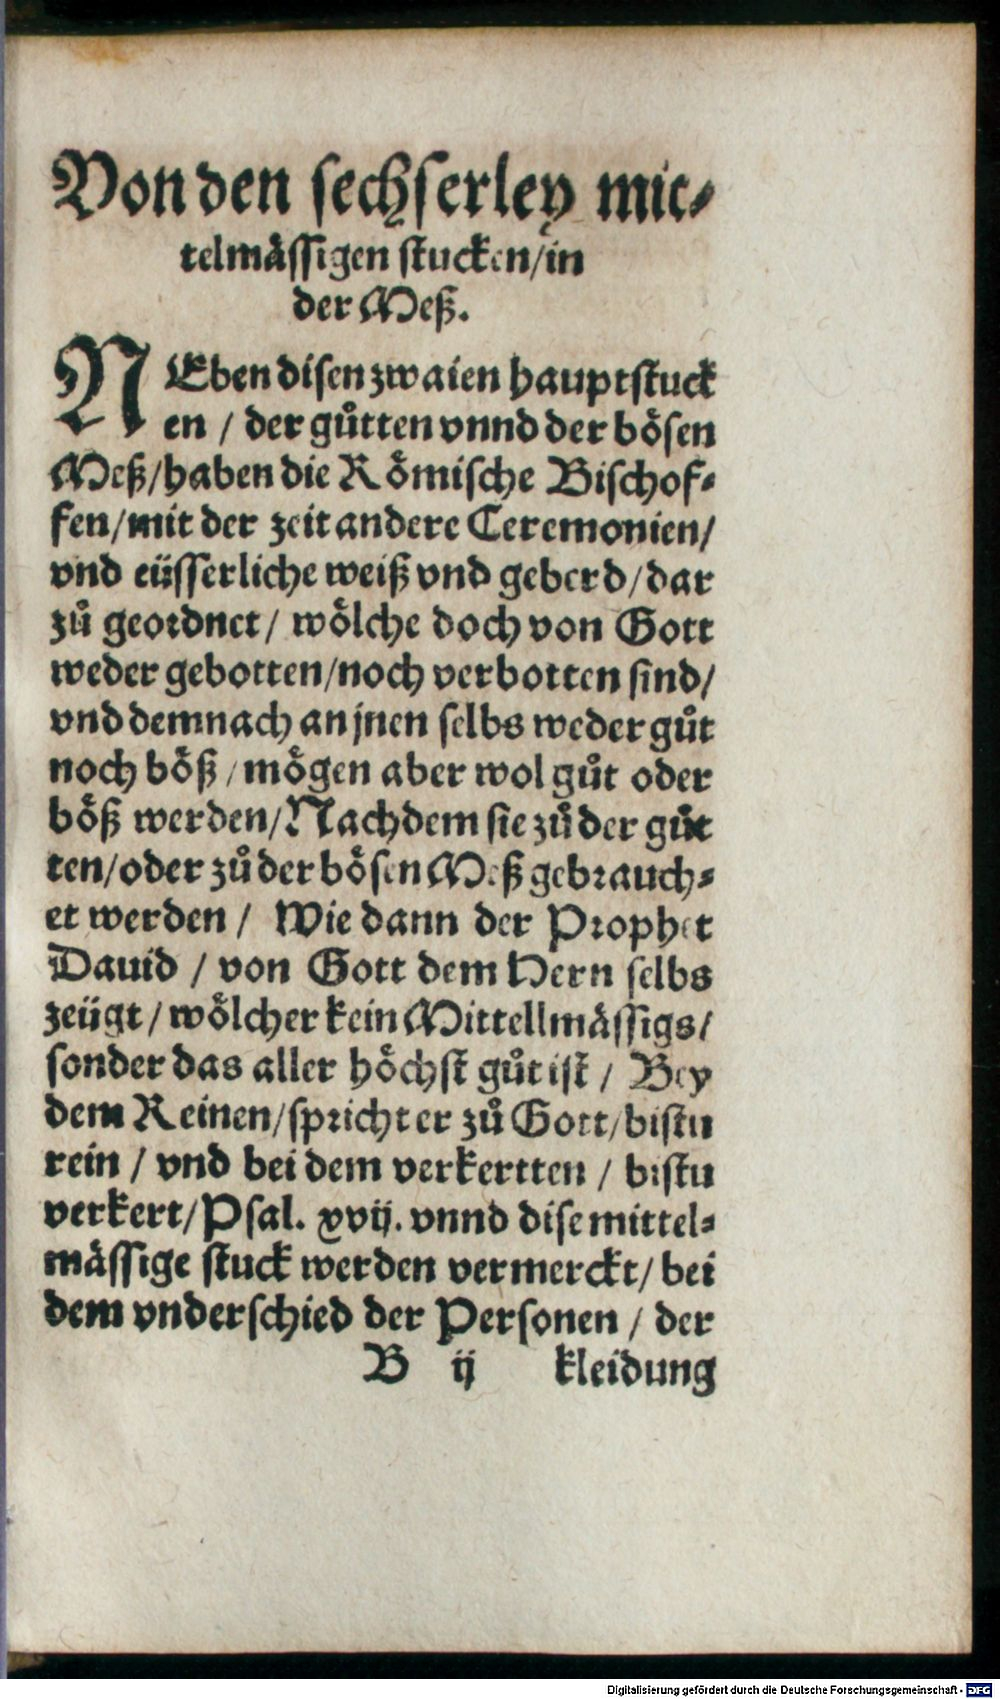 Von den sechserley mit⸗
telmässigen stucken/in
der Meß.
NEben disen zwaien hauptstuck
en / der gůtten vnnd der bösen
Meß/haben die Römische Bischof⸗
fen/mit der zeit andere Ceremonien/
vnd eüsserliche weiß vnd geberd/dar
zů geordnet/ wölche doch von Gott
weder gebotten/noch verbotten sind/
vnd demnach an jnen selbs weder gůt
noch böß/mögen aber wol gůt oder
böß werden/Nachdem sie zů der gůt
ten/oder zů der bösen Meß gebrauch⸗
et werden / Wie dann der Prophet
Dauid / von Gott dem Hern selbs
zeügt/wölcher kein Mittellmässigs/
sonder das aller höchst gůt ist / Bey
dem Reinen/spricht er zů Gott/bistu
rein / vnd bei dem verkertten / bistu
verkert/Psal. xvij. vnnd dise mittel⸗
mässige stuck werden vermerckt/bei
dem vnderschied der Personen / der
B ij kleidung
Digitalisierung gefördert durch die Deutsche Forschungsgemeinschaft - DFG